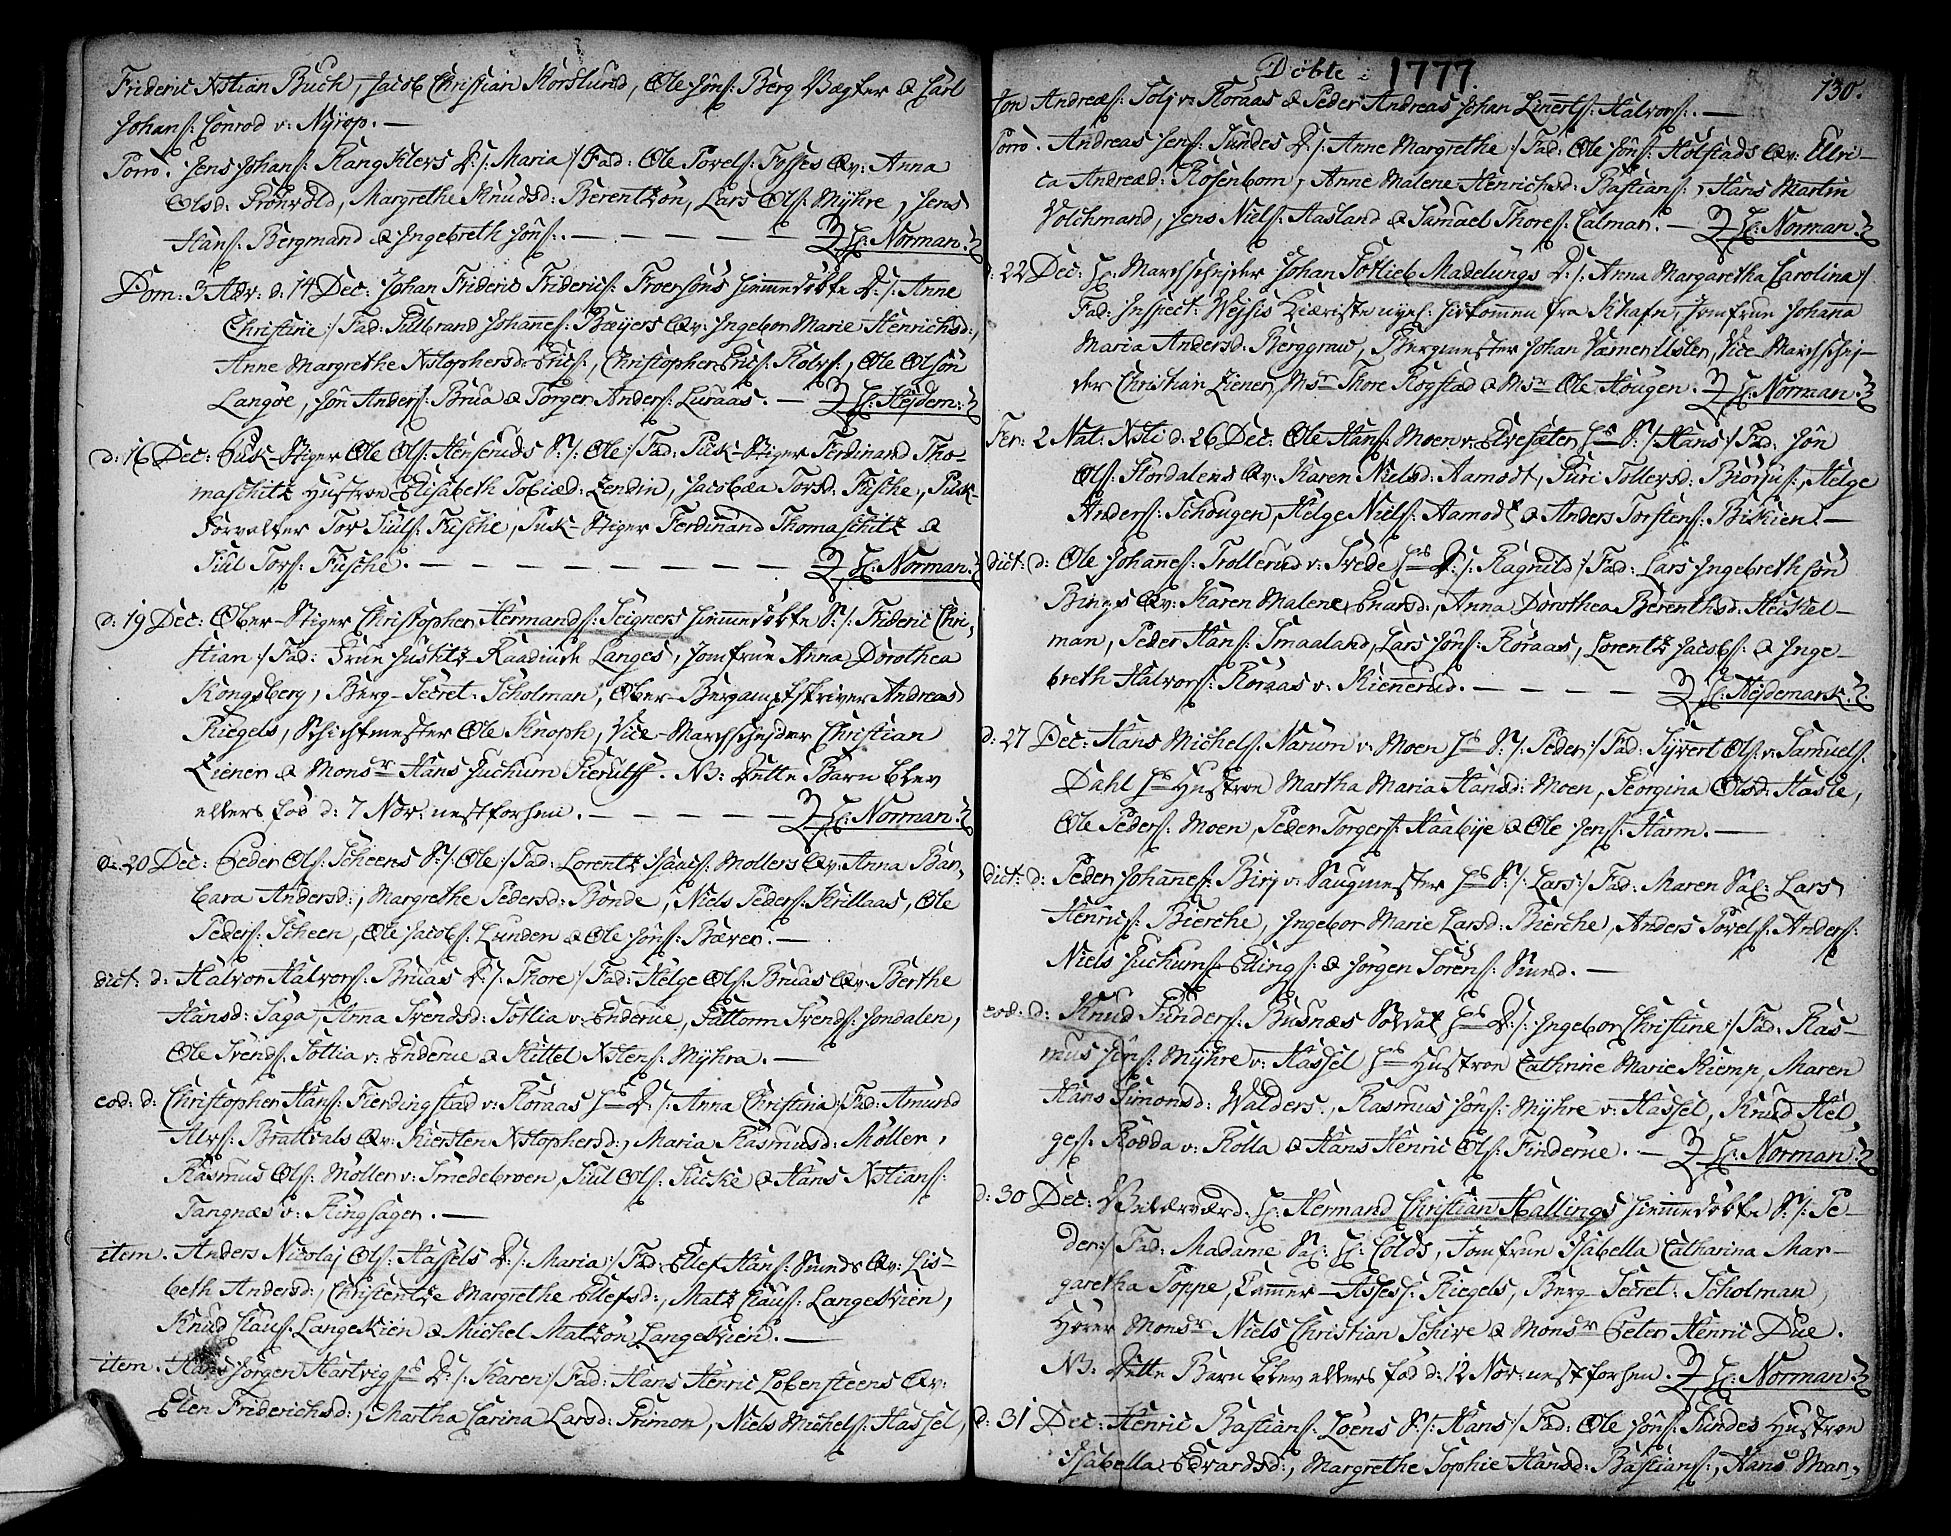 Frideric Xstian Buch, Jacob Christian Norslund, Ole Jöns: Berg Bøgter & Carl
Johans: Conrod v: Nyrop. —
Porro. Jens Johans: Rang Klevs D:/: Maria :/ Fad: Ole Povels: Fosses Qv: Anna
Olsd: Frönvold, Margrethe Knudsd: Berentzön, Lars Ols: Myhre, Jens
Hans: Bergmand & Ingebreth Jöns: . — — — — — H: Norman.
Dom: 3 Adv: d: 14 Dec: Johan Frideric Frideric: Froersöns hiemmedøbte D:/: Anne
Christine :/ Fad: Gulbrand Johanes: Bøeyers Qv: Ingebor Marie Henrichsd:,
Anne Margrethe Xstophersd: , Christopher Rolvs:, Ole Olsön
Langöe, Jön Anders: Brua & Torger Anders: Luraas. — H: Hejdem:
d: 16 Dec: Puk-Stiger Ole Ols: Henseruds S:/: Ole :/ Fad: Puk-Stiger Ferdinand Tho-
maschitz Hustroe Elisabeth Tobiæd: Zendin, Jacobæa Torsd: Fusche, Puk-
Forvalter Tor Juuls: Fusche, Puk-Stiger Ferdinand Thomaschitz &
Juul Tors: Fusche. — — — — — — — H: Norman.
d: 19 Dec: Ober-Stiger Christopher Hermands: Seigners hiemmedøbte S:/: Frideric Chri-
stian :/ Fad: Frue Justitz-Raadinde Langes, Jomfrue Anna Dorothea
Kongsberg, Berg-Secret: Scholman, Ober-Bergamptskriver Andreas
Riegels, Schichtmester Ole Knoph, Vice-Marchschejder Christian
Zienen & Monsr Hans Juchum Sierulff. NB: Dette Barn blev
ellers fød d: 7 Nov: nestforhen. — — — — — H: Norman.
d: 20 Dec: Peder Ols: Scheens S:/: Ole :/ Fad: Lorentz Isaacs: Mollers Qv: Anna Bar-
bara Andersd:, Margrethe Pedersd: Bonde, Niels Peders: Krillaas, Ole
Peders: Scheen, Ole Jacobs: Lunden & Ole Jöns: Bæver. —
dict: d: Halvor Halvors: Bruas D:/: Thore :/ Fad: Helge Ols: Bruas Qv: Berthe
Hansd: Saga, Anna Svendsd: Sotlia v: Enderue, Guttorm Svends: Jondalen,
Ole Svends: Sotlia v: Enderue & Kittel Xstens: Myhra. —
eod: d: Christopher Hans: Fierdingstad v: Koraas Hs D:/: Anna Christina :/ Fad: Amund
Alvs: Brattvals Qv: Kiersten Xstophersd:, Maria Rasmusd: Moller,
Rasmus Ols: Moller v: Smedebroen, Juul Ols: Sucke & Hans Xstians:
Tangnæs v: Ringsager. —
item. Anders Nicolaj Ols: Hassels D:/: Maria :/ Fad: Ellef Hans: Sunds Qv: Lis-
beth Andersd:, Christentze Margrethe Ellefsd:, Matz Claus: Langeskien,
Knud Claus: Langeskien & Michel Matzön Langeskien. —
item. Hans Jörgen Hartvig Hs D:/: Karen :/ Fad: Hans Henric Lobensteens Qv:
Elen Friderichsd:, Martha Carina Larsd: Primon, Niels Michels: Hassel,
Döbte i 1777. 130.
Jon Andreæs: v: Koraas & Peder Andreas Johan Linerts: Halvors: . —
Porro. Andreas Jens: Sundes D:/: Anne Margrethe :/ Fad: Ole Jöns: Holstads Qv: Ellri-
ca Andread: Rosenbom, Anne Malene Henrichsd: Bastians:, Hans Martin
Volchmand, Jens Niels: Aasland & Samuel Thores: Calman. — H: Norman.
d: 22 Dec: H: Marchschejder Johan Gotlieb Madelungs D:/: Anna Margaretha Carolina :/
Fad: Inspect: Wejsis Kiæriste nyel: hidkommen fra Khafn, Jomfrue Johana
Maria Andersd: Berggraw, Bergmester Johan Værner Uslen, Vice Marchschej-
der Christian Zienen, Msr Thore Rogstad & Msr Ole Hougen. H: Norman.
Fer: 2 Nat: Xsti d: 26 Dec: Ole Hans: Moen v: Edvesaler Hs S:/: Hans :/ Fad: Jön
Ols: Stordalens Qv: Karen Nielsd: Aamodt, Guri Tollefsd: Biörus:, Helge
Anders: Schougen, Helge Niels: Aamodt & Anders Torstens: Biskien. —
dict: d: Ole Johanes: Trollerud v: Svede Hs D:/: Ragnild :/ Fad: Lars Ingebrethsön
Bings Qv: Karen Malene Enarsd:, Anna Dorothea Berenthsd: Heckel-
man, Peder Hans: Smaaland, Lars Jöns: Koraas, Lorentz Jacobs: & Inge-
breth Halvors: Koraas v: Kiennerud. — — — — H: Hejdemark.
d: 27 Dec: Hans Michels: Narum v: Moen Hs S:/: Peder :/ Fad: Syvert Ols: v: Samuels:
Dahl Hs Hustroe Martha Maria Hansd: Moen, Georgina Olsd: Hasle,
Ole Peders: Moen, Peder Torgers: Haabye & Ole Jens: Harm. —
dict: d: Peder Johanes: Birj v: Saugmester Hs S:/: Lars :/ Fad: Maren Sal: Lars
Henrics: Bierche, Ingebor Marie Larsd: Bierche, Anders Povels: Anders:
Niels Juchums: Ellings: & Jörgen Sörens: Sund. —
eod: d: Knud Gunders: Busnæs Soldat Hs D:/: Ingebor Christine :/ Fad: Ras-
mus Jöns: Myhre v: Hassel Hs Hustroe Cathrine Marie Kiemp, Maren
Hans Simonsd: Walders, Rasmus Jöns: Myhre v: Hassel, Knud Hel-
ges: Rodda v: Rolla & Hans Henric Ols: Finderue. — H: Norman.
d: 30 Dec: Velærværd: H: Hermand Christian Hallings hiemmedøbte S:/: Pe-
der :/ Fad: Madame Sal: H: Colds, Jomfrue Isabella Catharina Mar-
garetha Poppe, Cammer-Assess: Riegels, Berg-Secret: Scholman,
Hörer Monsr Niels Christian Schive & Monsr Peter Henric Due.
NB: Dette Barn blev ellers fød d: 12 Nov: nestforhen. H: Norman.
d: 31 Dec: Henric Bastians: Loens S:/: Hans :/ Fad: Ole Jöns: Sundes Hustroe
Isabella Edvardsd:, Margrethe Sophie Hansd: Bastians:, Hans Mar-